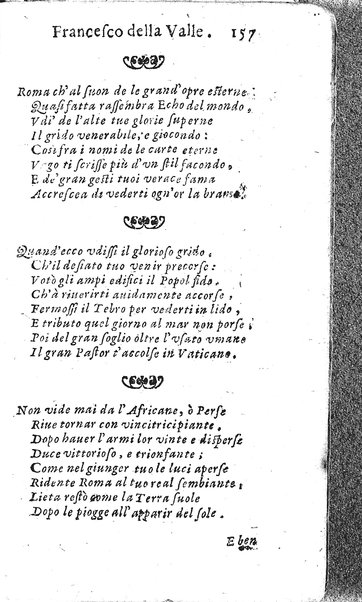 Francesco della Valle. 157
Roma ch'al suon de le grand'opre esterne
Quasi fatta rassembra Echo del mondo,
Vdi' de l'alte tue glorie superne
Il grido venerabile, e giocondo:
Cosi fra i nomi de le carte eterne
Vago ti scrisse più d'vn stil facondo,
E de' gran gesti tuoi verace fama
Accrescea di vederti ogn'or la brama.
Quand'ecco vdissi il glorioso grido,
Ch'il desiato tuo venir precorse:
Votò gli ampi edifici il Popol fido,
Ch'à riuerirti auidamente accorse,
Fermossi il Tebro per vederti in lido,
E tributo quel giorno al mar non porse,
Poi del gran soglio oltre l'vsato vmano
Il gran Pastor t'accolse in Vaticano.
Non vide mai da l'Africane, ò Perse
Riue tornar con vincitrici piante,
Dopo hauer l'armi lor vinte e disperse
Duce vittorioso, e trionfante;
Come nel giunger tuo le luci aperse
Ridente Roma al tuo real sembiante,
Lieta restò come la Terra suole
Dopo le piogge all'apparir del sole.
E ben